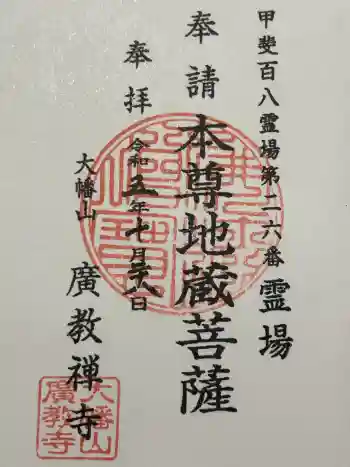 甲斐百八霊場第二六番 霊場
奉請 本尊地蔵菩薩
奉拝 令和五年七月二十八日
大幡山 廣教禅寺
大幡山
廣教寺